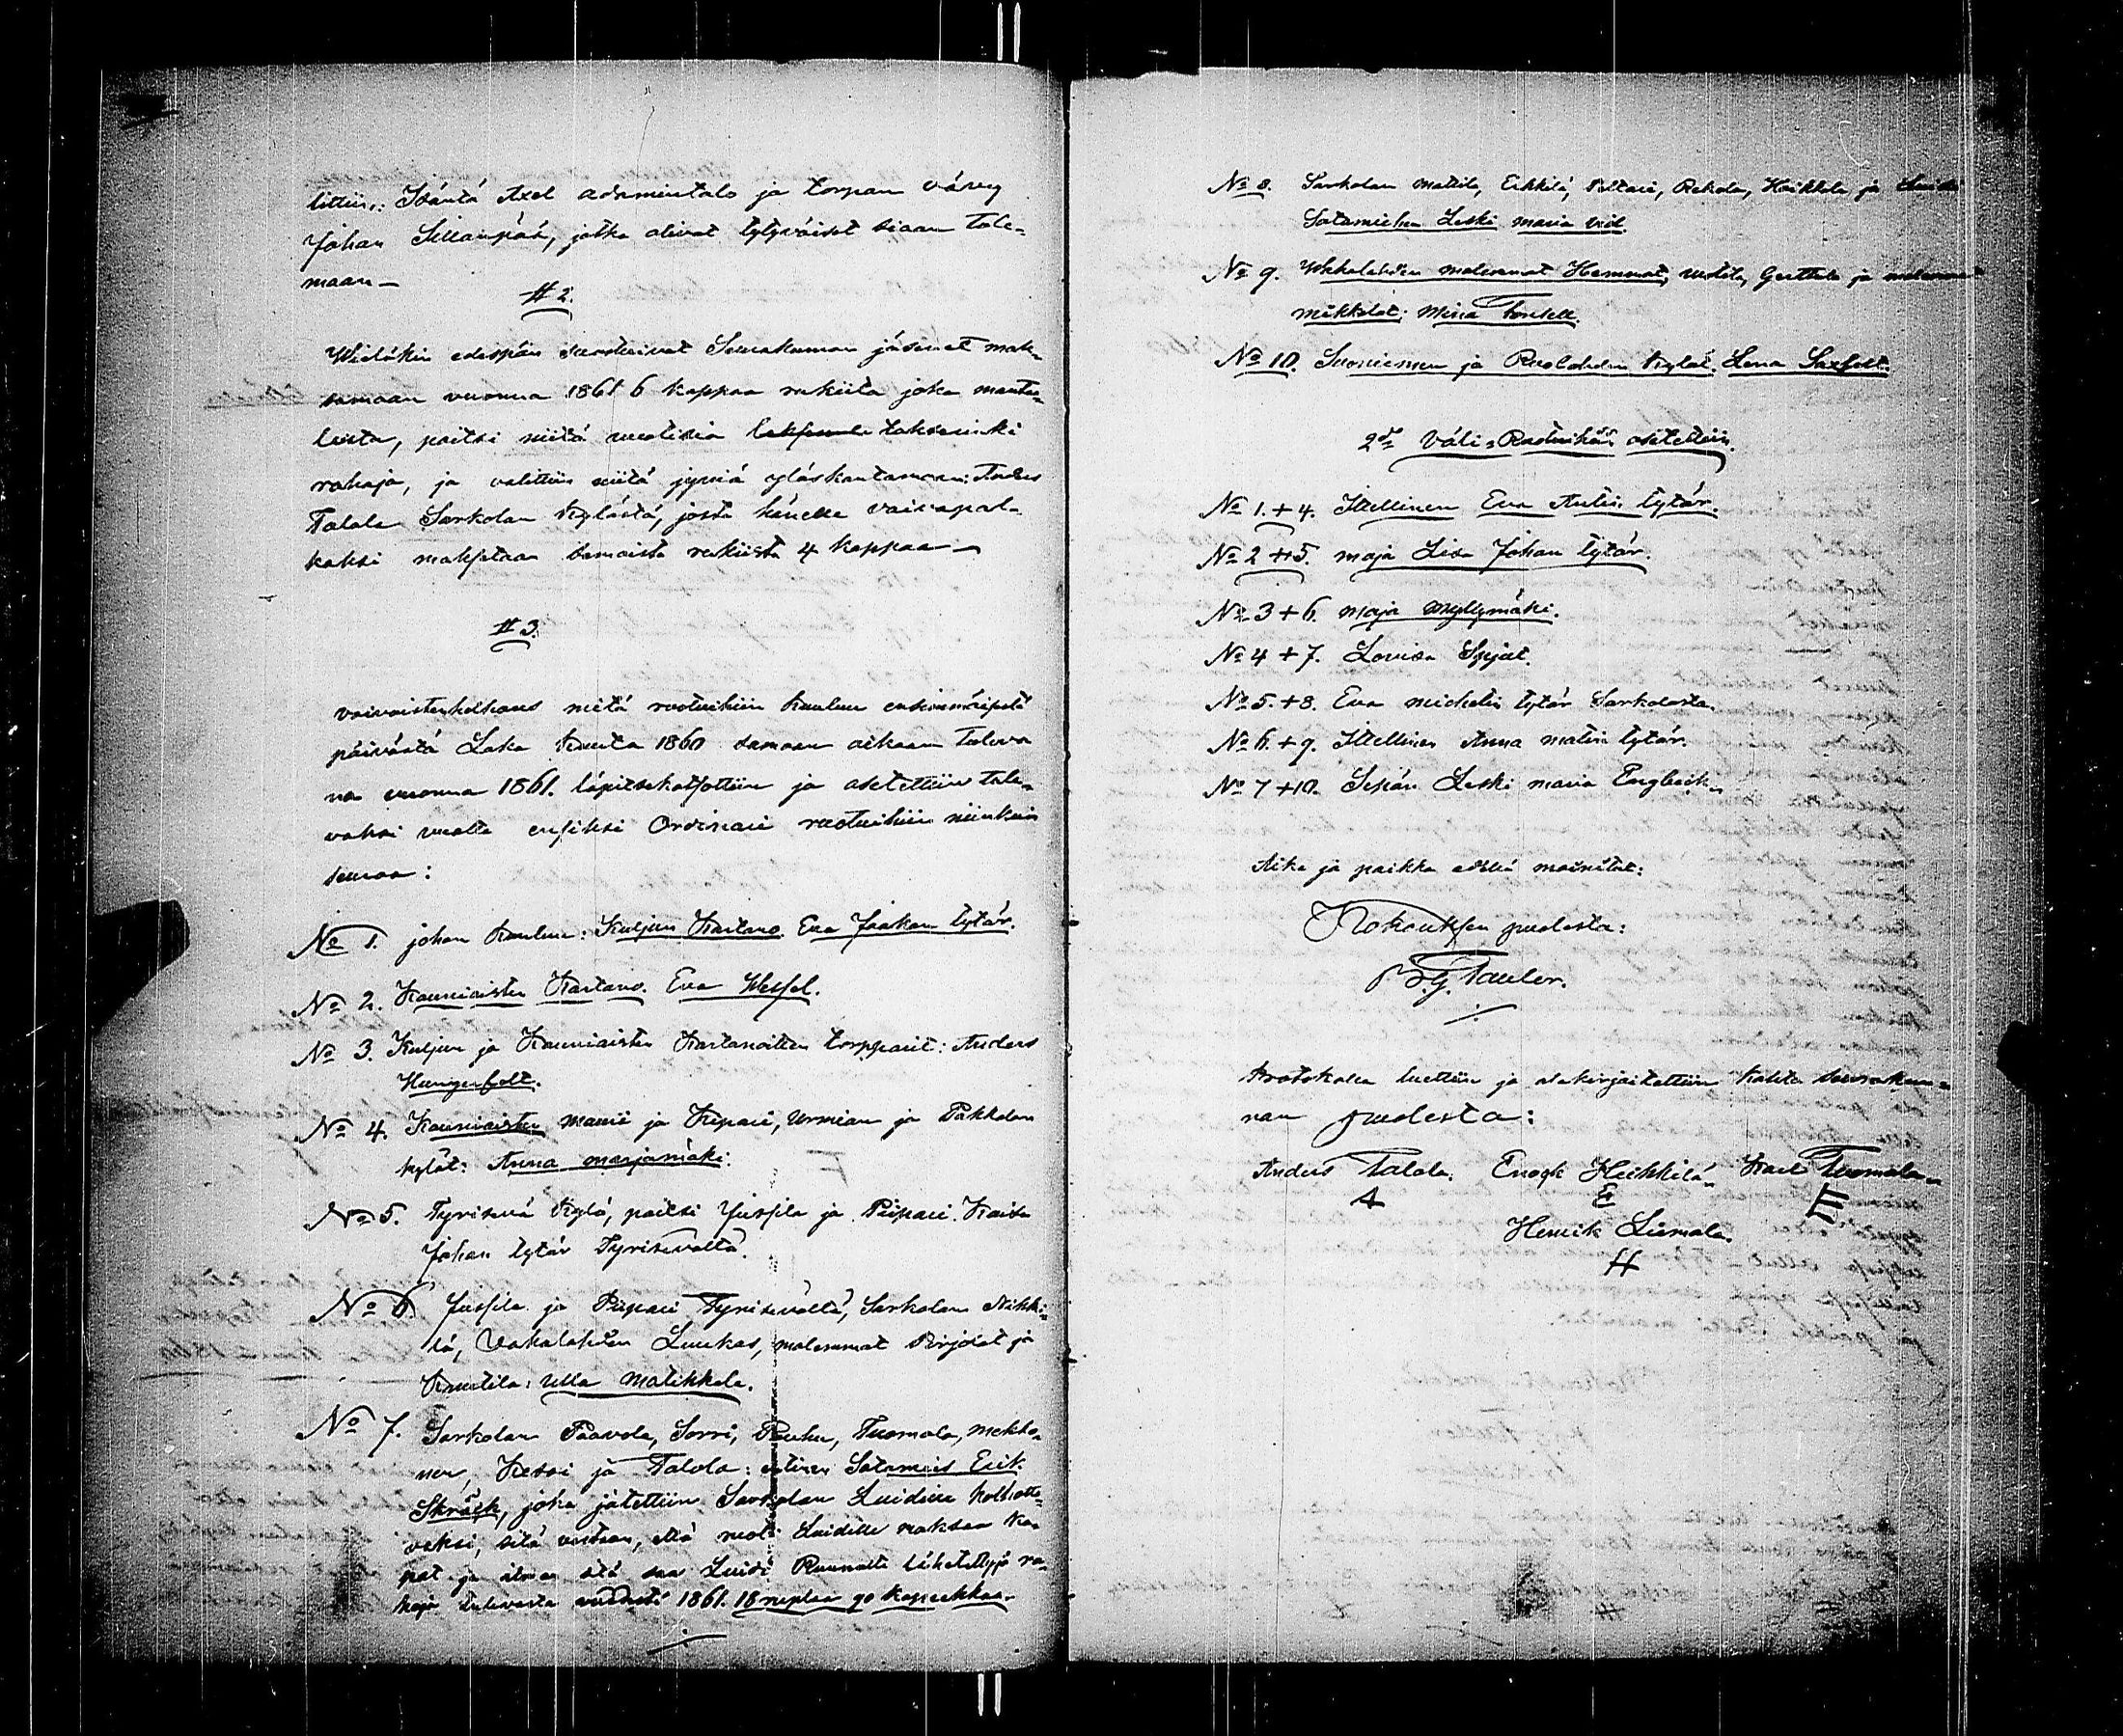 littiin: Isäntä Axel Adamintalo ja torpan vävy
Johan Sillanpää, jotka olivat tytyväiset siaan tule-
maan—
# 2.
Wieläkin edespäin suostuivat Seurakunnan jäsenet mak-
samaan vuonna 1861 6 kappaa rukiita joka manta-
lista, paitsi niitä vuotisia takserinki
rahaja, ja valittiin niitä jyviä ylöskantamaan: Anders
Talola Sarkolan kylästä, josta hänelle vaivapal-
kaksi maksetaan samoista rukiista 4 kappaa—
# 3.
vaivaistenholhous mitä ruotuihin kuuluu ensimäisestä
päivästä Loka kuuta 1860 samaan aikaan tuleva
na vuonna 1861. läpitsekatsottiin ja asetettiin tule-
vaksi vuotta ensiksi Ordinari ruotuihin niinkuin
seuraa:
No 1. johon kuuluu: Kuljun Kartano. Eva Jaakon tytär.
No 2. Kauniaisten Kartano. Eva Wessel.
No 3. Kuljun ja Kauniaisten Kartanoitten torpparit: Anders
Hungerfelt.
No 4. Kauniaisten manni ja Kipari, Urmian ja Pakkolan
kylät: Anna marjamäki.
No 5. Tyrisevä kylä, paitsi Jussila ja Piipari. Kaisa
Johan tytär Tyrisevältä.
No 6. Jussila ja Piipari Tyrisevältä, Sarkolan Nikki-
lä, Vakalahden Luukas, molemmat Pirjolat ja
Knuutila: Ulla Matikkala.
No 7. Sarkolan Paavola, Sorri, Pouhu, Tuomola, mekko-
nen, Kessi ja Talola: entinen Sotamies Erik
Skräck, joka jätettiin Sarkolan Luidille holhotta-
vaksi, sitä vastaan, että ruoti Luidille maksaa ka-
pat ja ilman sitä saa Luidi Ruunulta lähetettyjä ra-
hoja tulevasta vuodesta 1861. 18 ruplaa 90 kopeekkaa.
No 8. Sarkolan Mattila, Erkkilä, Palttari, Rekola, Heikkila ja Luidi
Sotamiehen Leski maria vid.
No 9. Wakkalahden molemmat Hemmat, Uotila, Gerttula ja molemmat
mikkolat: Mina Forssell.
No 10. Suoniemen ja Pulalahden kylät. Lena Saxfelt.
2do Väli-Ruotuihin asetettiin.
No 1. + 4. Itellinen Eva Antin tytär.
No 2 + 5. maja Lisa Johan tytär.
No 3 + 6. maja myllymäki.
No 4 + 7. Lovisa Spjut.
No 5. + 8. Eva michelin tytär Sarkolasta.
No 6. + 9. Itellinen Anna matin tytär.
No 7 + 10. Sepän Leski maria Engbäck.
Aika ja paikka edellä mainitut:
Kokouksen puolesta:
B. G. Tauler.
Protokolla luettiin ja alakirjoitettiin koko seurakun-
nan puolesta:
Anders Talola. Enock Heikkilä. Karl Tuomola.
A E E
Henrik Liimola.
H